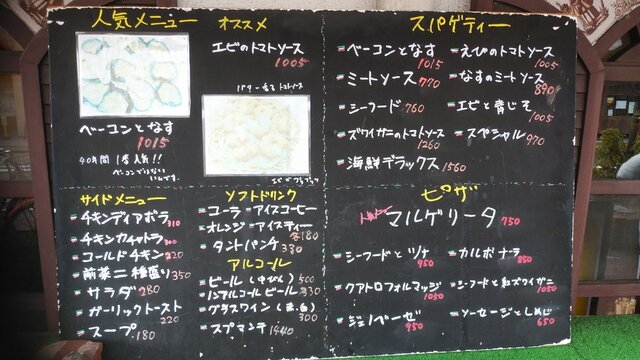 人気メニュー
ベーコンとなす
1015
40年間 1番人気!!
オススメ
エビのトマトソース
1005
バター香る トマトソース
スパゲティー
ベーコンとなす
1015
ミートソース 770
シーフード 760
ズワイガニのトマトソース
1260
海鮮デラックス 1560
えびのトマトソース
1005
なすのミートソース
890
エビと青じそ
1005
スペシャル 970
サイドメニュー
チキンディアボラ 310
チキンカチャトラ 300
コールドチキン 220
前菜二種盛り 350
サラダ 280
ガーリックトースト
220
スープ 180
ソフトドリンク
コーラ アイスコーヒー
オレンジ アイスティー
各180
タントパンチ 330
アルコール
ビール(中びん) 500
ノンアルコールビール 330
グラスワイン(赤、白)
300
スプマンテ 1440
ピザ
人気メニュー
マルゲリータ 750
シーフードとツナ
950
クアトロフォルマッジ
1050
ジェノベーゼ
950
カルボナーラ
850
シーフードと紅ズワイガニ
1050
ソーセージとしめじ
650